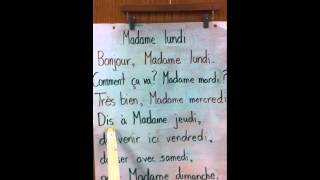 Madame lundi
Bonjour, Madame lundi.
Comment ça va? Madame mardi?
Très bien, Madame mercredi
Dis à Madame jeudi,
venir ici vendredi,
avec samedi,
Madame dimanche.